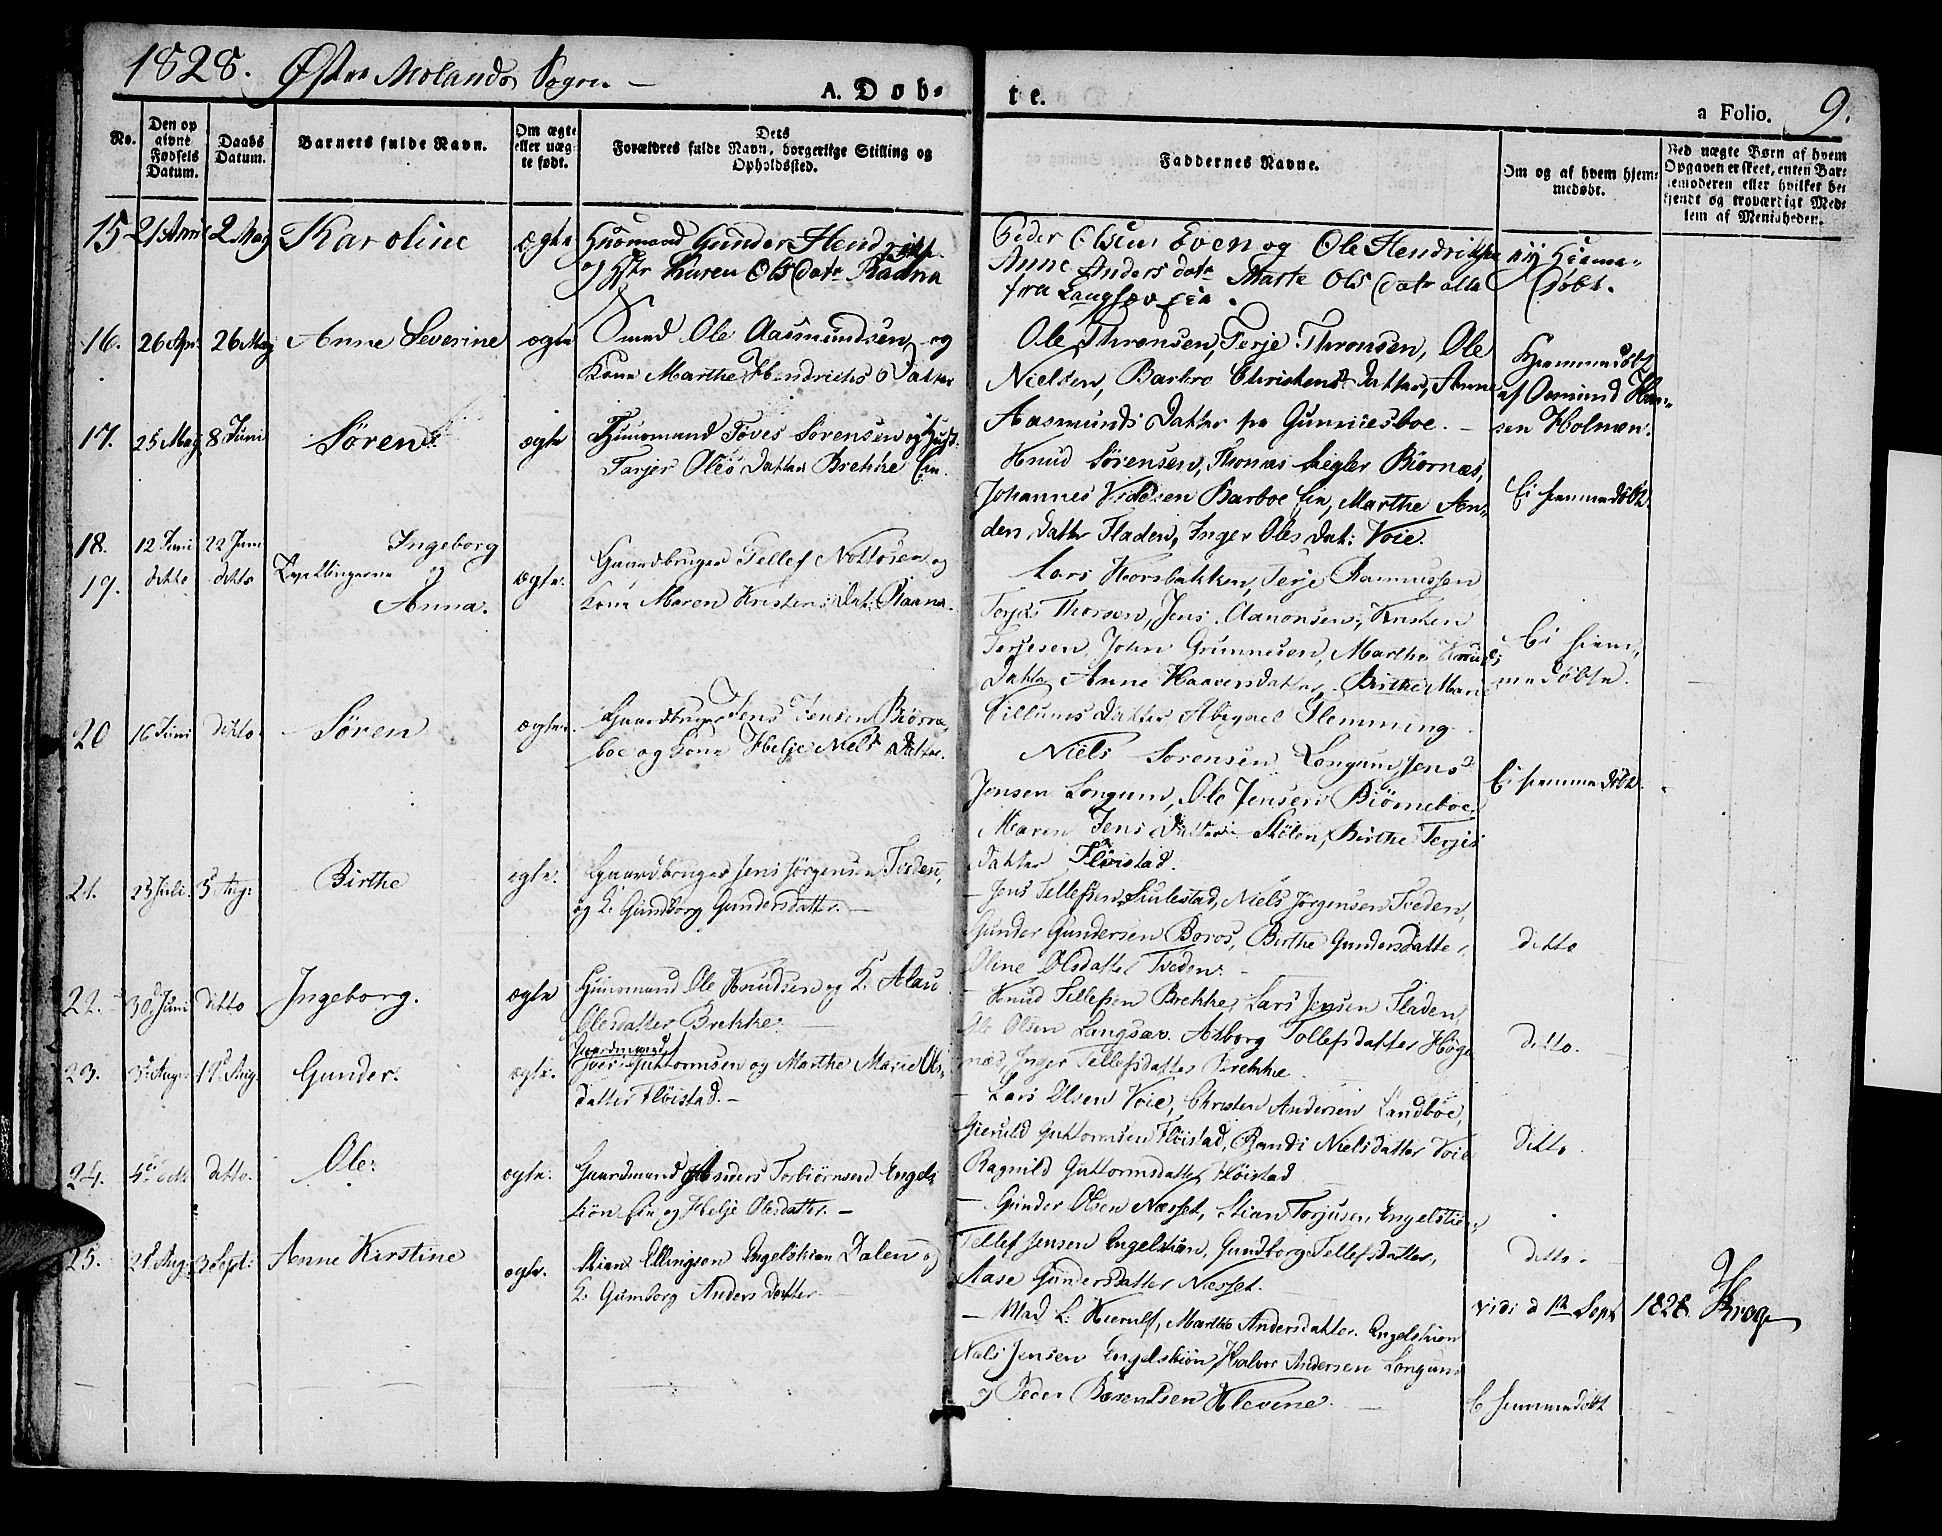 1828. Østre Molands Sogn. —
A. Døb- te.
a Folio. 9.
No.
Den op givne Fødsels Datum.
Daabs Datum.
Barnets fulde Navn.
Om ægte eller uæg te født.
Dets Forældres fulde Navn, borgerlige Stilling og Opholdssted.
Faddernes Navne.
Om og af hvem hjem- medøbt.
Ved uægte Børn af hvem Opgaven er skeet, enten Bar- nemoderen eller hvilket be- kjendt og troværdigt Med- lem af Menigheden.
15 21 April 2 May Karoline ægte Huusmand Gunder Hendriks.
og Hstr Karen Ols datr Raana
Peder Olsen Even og Ole Hendriks
Anne Anders datr Marte Ols datr alle
fra Langsæv Eie.
Hieme-
døbt.
16. 26 Apr. 26 May Anne Severine ægte Smed Ole Aasmundsen og
Kone Marthe Hendrichs Datter
Ole Thronsen, Terje Thronsen, Ole
Nielsen, Barbro Christens Datter, Anne
Aasmunds Datter fra
Hiemmedøbt
af Osmund Han-
sen Holmen.
17. 25 May 8 Juni Søren ægte Huusmand Toves Sørensen og Hust.
Tarjer Oles Datter Brekke Eie.
Knud Sørensen, Thomas Ziegler Biornæs,
Johannes Barboe Eie, Marthe An-
ders Datter Fladen, Inger Oles Dat: Voie.
Ei hiemmedøbt.
18. 12 Juni 22 Juni Ingeborg
19. ditto ditto Tvillingerne og
Anna. ægte.
Gaardbruger Tellef Nottosen og
Kone Maren Kristens Dat: Raana.
Lars Horsbakken, Terje Rasmussen
Terjes Thorsen, Jens Aanonsen, Kristen
Terjesen, John Grunnesen, Marthe Knuds
Datter Anne Haavorsdatter, Birthe Marie
Villums Datter Abigael Flemming
Ei hiem-
medøbte.
20 16 Juni ditto. Søren ægte. Gaardbruger Jens Jensen Biørne
boe og Kone Helje Niels Datter.
Niels Sørensen Longum, Jens
Jensen Longum, Ole Jensen Biørneboe,
Maren Jens Datter Stølen, Birthe Terjes
Datter Fløistad.
Ei hiemmedøbt.
21. 23 Juli. 3 Aug. Birthe ægte. Gaardbruger Jens Jørgensen Tveden,
og K. Gundborg Gundersdatter. —
— Jens Tellefsen Sulestad, Niels Jørgensen Tveden,
Gunder Gundersen Boros, Birthe Gundersdatter,
Oline Olsdatter Tveden. —
ditto
22. 30 Juni ditto Ingeborg. ægte Huusmand Ole Knudsen og K. Alau
Olesdatter Brekke. —
— Knud Tellefsen Brekke, Lars Jensen Fladen,
Ole Olsen Langsæv. Asborg Tollefsdatter Høge
næs, Inger Tellefsdatter Brekke.
ditto.
23. 3 Aug. 17 Aug. Gunder. ægte. Gaardmand
Iver Guttormsen og Marthe Marie Ols-
datter Fløistad. —
— Lars Olsen Voie, Christen Andersen Landboe,
Gieruld Guttormsen Fløistad, Randi Nielsdatter Voie
Ragnild Guttormsdatter Fløistad
ditto.
24. ditto. Ole. ægte. Gaardmand Anders Torbiørnsen Engel-
kiøn Eie og Helje Olesdatter. —
— Gunder Olsen Næsset, Stian Torjusen, Engelskiøn,
Tellef Jensen Engelskiøn, Gundborg Tellefsdatter,
Aase Gundersdatter Næsset.
ditto.
25. 21 Aug. 3 Sept: Anne Kirstine ægte. Stian Ellingsen Engelskiøn Dalen og
K. Gumborg Anders datter —
— Mad L. Kierulf, Marthe Andersdatter Engelskiøn
Niels Jensen Engelskiøn, Halvor Andersen Longum
og Peder Klevene. —
vidi d 12 Sept 1828 Krog
E hiemmedøbt